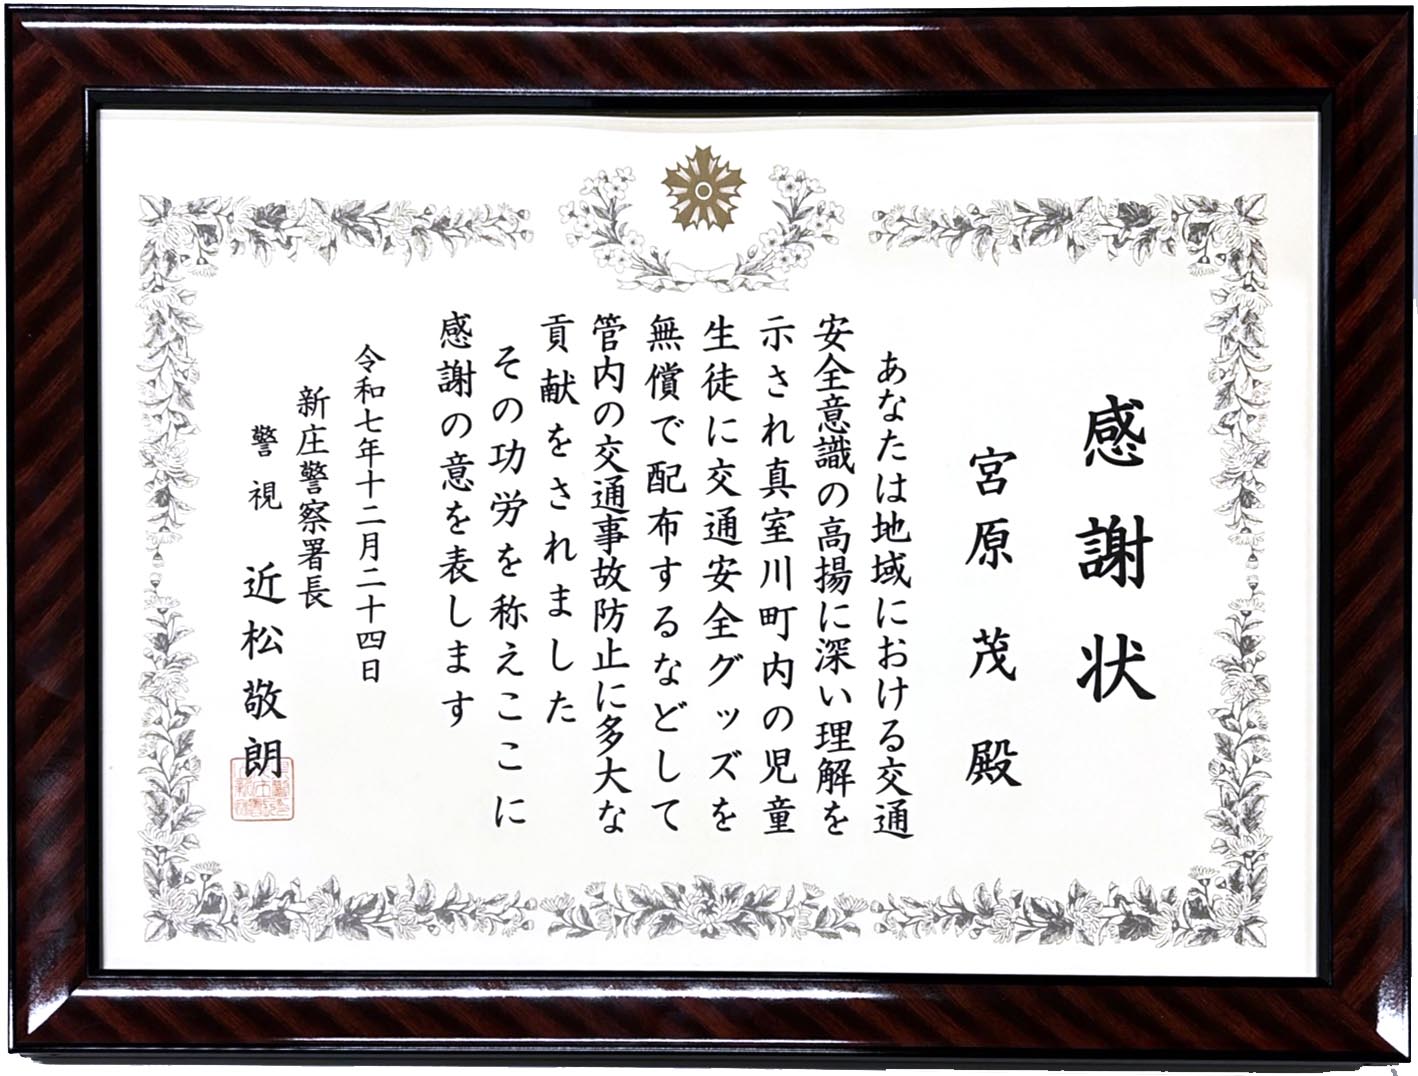 感謝状
宮原 茂 殿
あなたは地域における交通
安全意識の高揚に深い理解を
示され真室川町内の児童
生徒に交通安全グッズを
無償で配布するなどして
管内の交通事故防止に多大な
貢献をされました
その功労を称えここに
感謝の意を表します
令和七年十二月二十四日
新庄警察署長
警視 近松敬朗